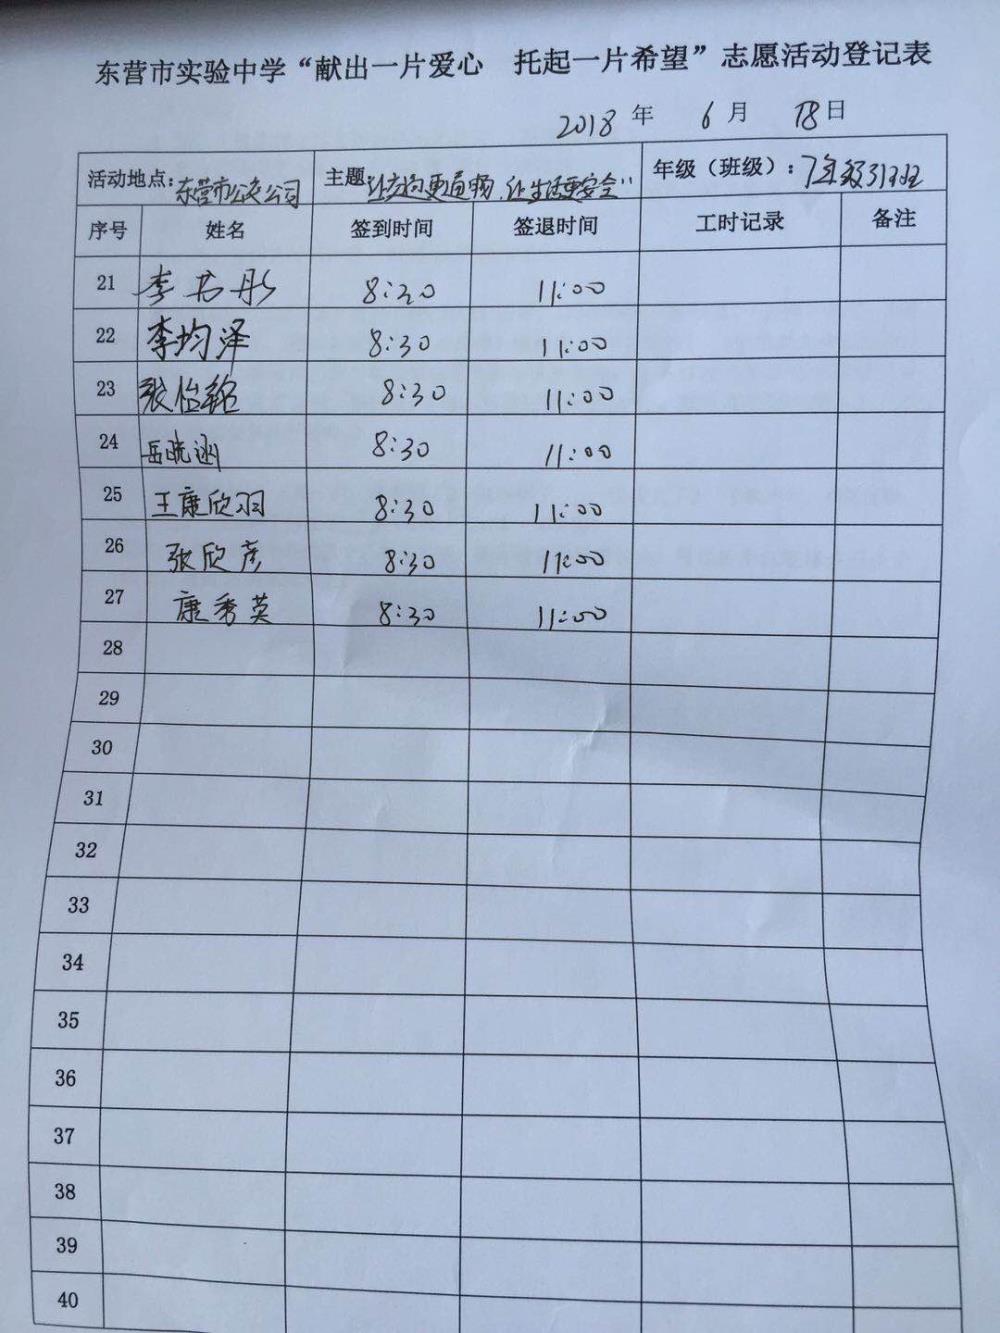 东营市实验中学“献出一片爱心 托起一片希望”志愿活动登记表
2018年 6月 18日
活动地点:东营市公交公司 主题:“让交通更道畅,让生活更安全” 年级(班级):7年级31班
序号 姓名 签到时间 签退时间 工时记录 备注
21 李书彤 8:30 11:00
22 李均泽 8:30 11:00
23 张怡 8:30 11:00
24 岳晓涵 8:30 11:00
25 王康欣羽 8:30 11:00
26 张欣彦 8:30 11:00
27 康秀英 8:30 11:00
28
29
30
31
32
33
34
35
36
37
38
39
40